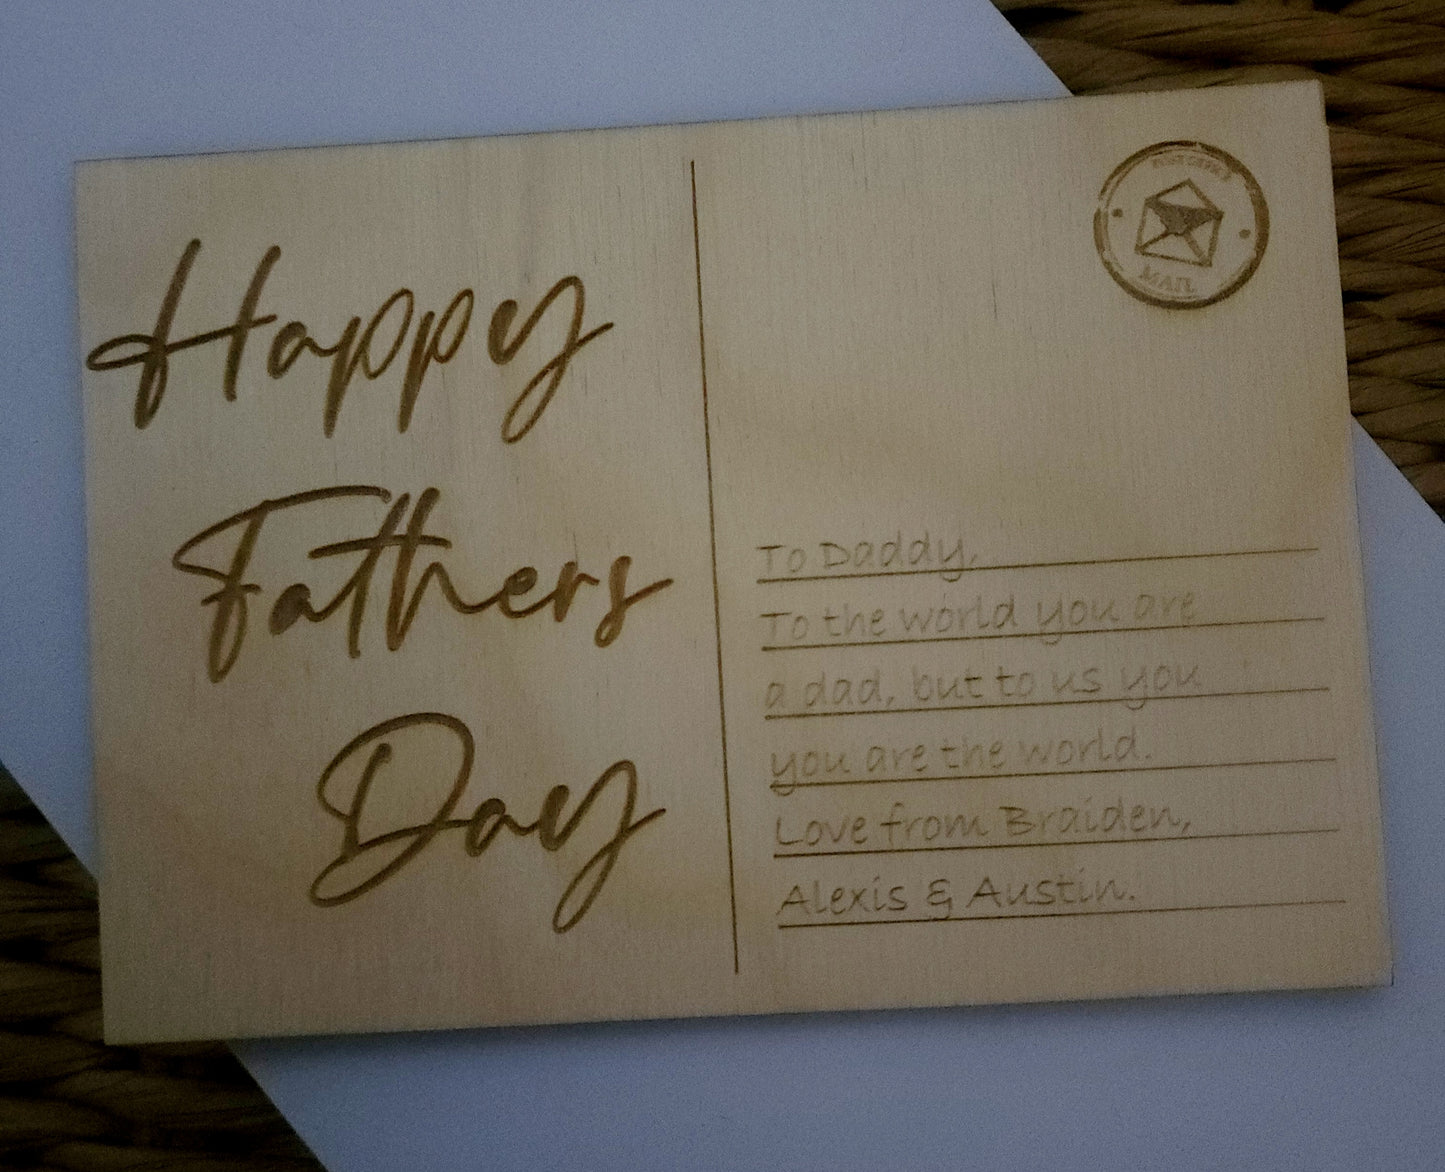 Happy
Fathers
Day
POST OFFICE
MAIL
To Daddy,
To the world you are
a dad, but to us you
you are the world.
Love from Braiden,
Alexis & Austin.